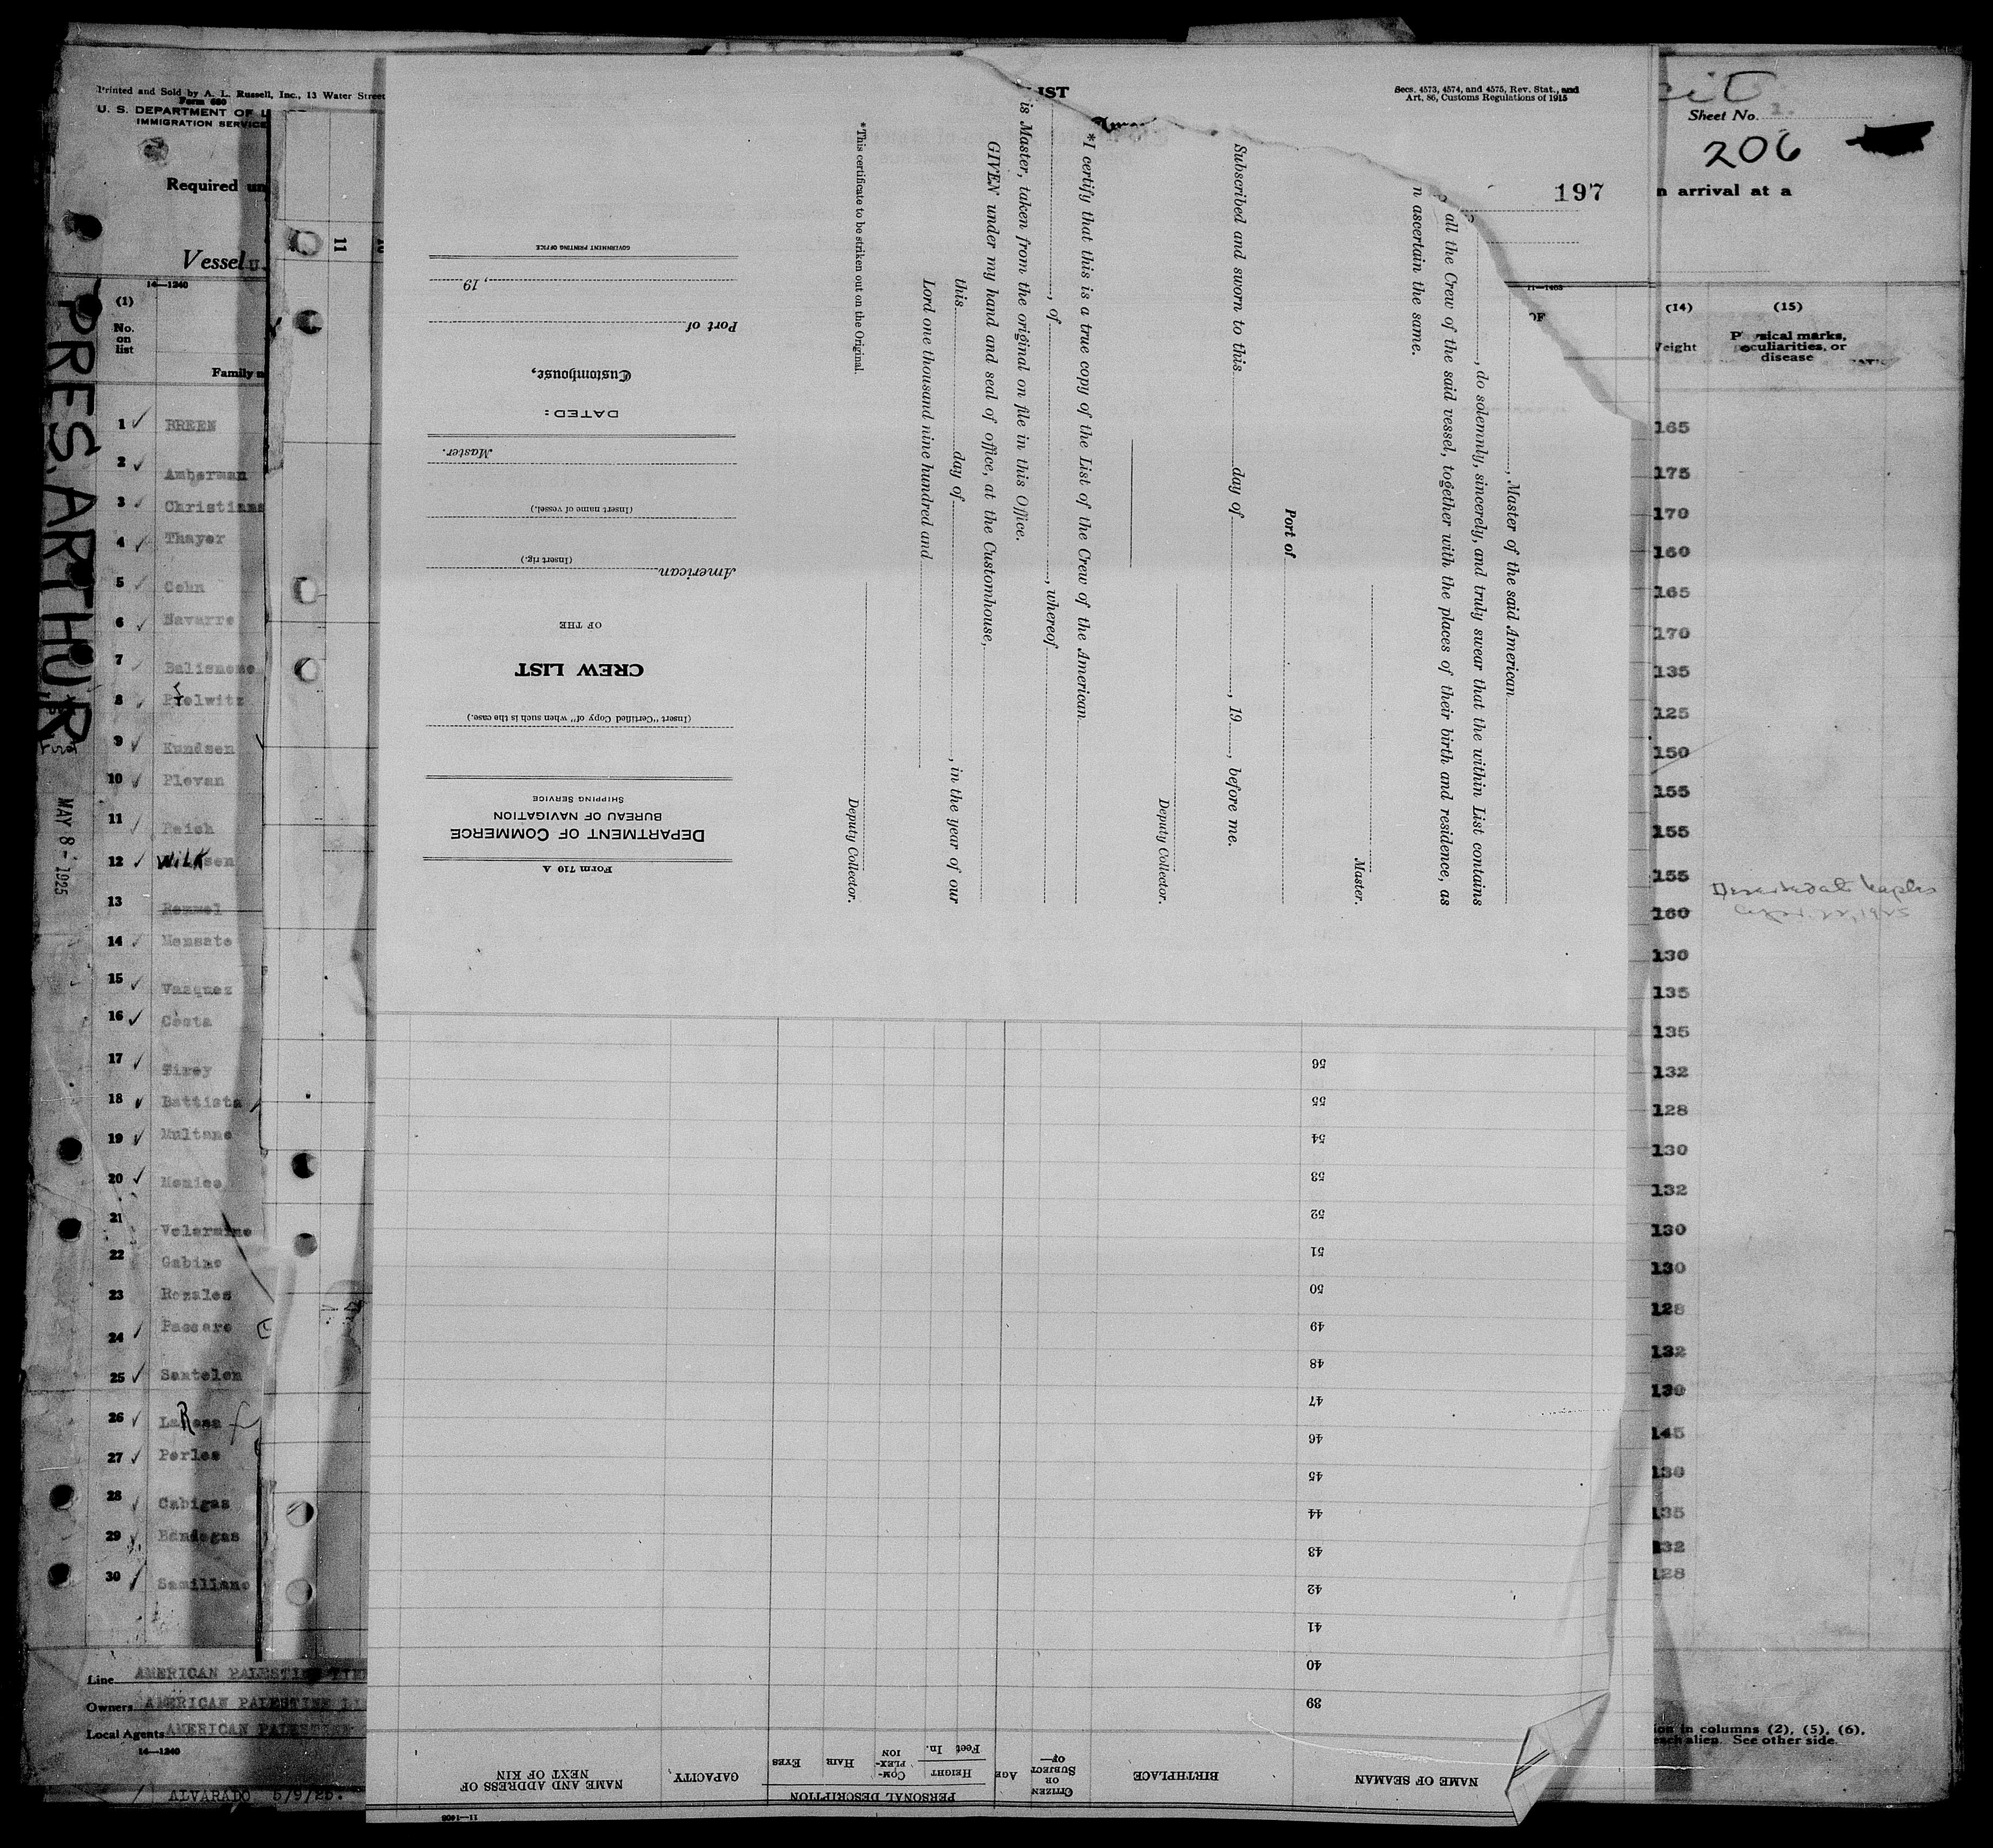 Printed and Sold by A. L. Russell, Inc., 13 Water Street
Form 680
U. S. DEPARTMENT OF L
IMMIGRATION SERVICE
Required un
Vessel
14—1240
(1)
No.
on
list
Family n
PRES. ARTHUR
MAY 8 - 1925
1 BREEN
2 Amberman
3 Christians
4 Thayer
5 Cohn
6 Navarre
7
8
9 Kundsen
10 Plevan
11
12
13
14 Monsato
15 Vazquez
16 Costa
17
18 Battista
19 Multano
20
21
22 Gabino
23 Rozales
24 Passaro
25 Santelon
26 LaRosa
27 Perles
28 Cabigas
29 Bandogas
30 Samillano
Line AMERICAN PALESTINE LINE
Owners AMERICAN PALESTINE LI
Local Agents AMERICAN PALESTINE
14—1240
ALVARADO 5/9/25.
11
IST
Secs. 4573, 4574, and 4575, Rev. Stat., and
Art. 86, Customs Regulations of 1915
197
11—1408
OF
, Master of the said American
, do solemnly, sincerely, and truly swear that the within List contains
all the Crew of the said vessel, together with the places of their birth and residence, as
n ascertain the same.
Master.
Port of
Subscribed and sworn to this day of , 19 , before me.
Deputy Collector.
*I certify that this is a true copy of the List of the Crew of the American
, of , whereof
is Master, taken from the original on file in this Office.
GIVEN under my hand and seal of office, at the Customhouse,
this day of , in the year of our
Lord one thousand nine hundred and
Deputy Collector.
*This certificate to be striken out on the Original.
Form 710 A
DEPARTMENT OF COMMERCE
BUREAU OF NAVIGATION
SHIPPING SERVICE
(Insert "Certified Copy of" when such is the case.)
CREW LIST
OF THE
American
(Insert rig.)
(Insert name of vessel.)
Master.
DATED:
Customhouse,
Port of
, 19
GOVERNMENT PRINTING OFFICE
11—1408
NAME OF SEAMAN
BIRTHPLACE
CITIZEN
OR
SUBJECT
OF—
PERSONAL DESCRIPTION
AGE
HEIGHT
Feet In.
COM-
PLEX-
ION
HAIR
EYES
CAPACITY
NAME AND ADDRESS OF
NEXT OF KIN
39
40
41
42
43
44
45
46
47
48
49
50
51
52
53
54
55
56
Sheet No. 1.
206
n arrival at a
(14)
Weight
(15)
Physical marks,
peculiarities, or
disease
165
175
170
160
165
170
135
125
150
155
155
155 Deserted at Naples
160 Apr. 22, 1925
130
135
135
132
128
130
132
130
130
128
132
130
145
130
135
132
128
ion in columns (2), (5), (6),
each alien. See other side.